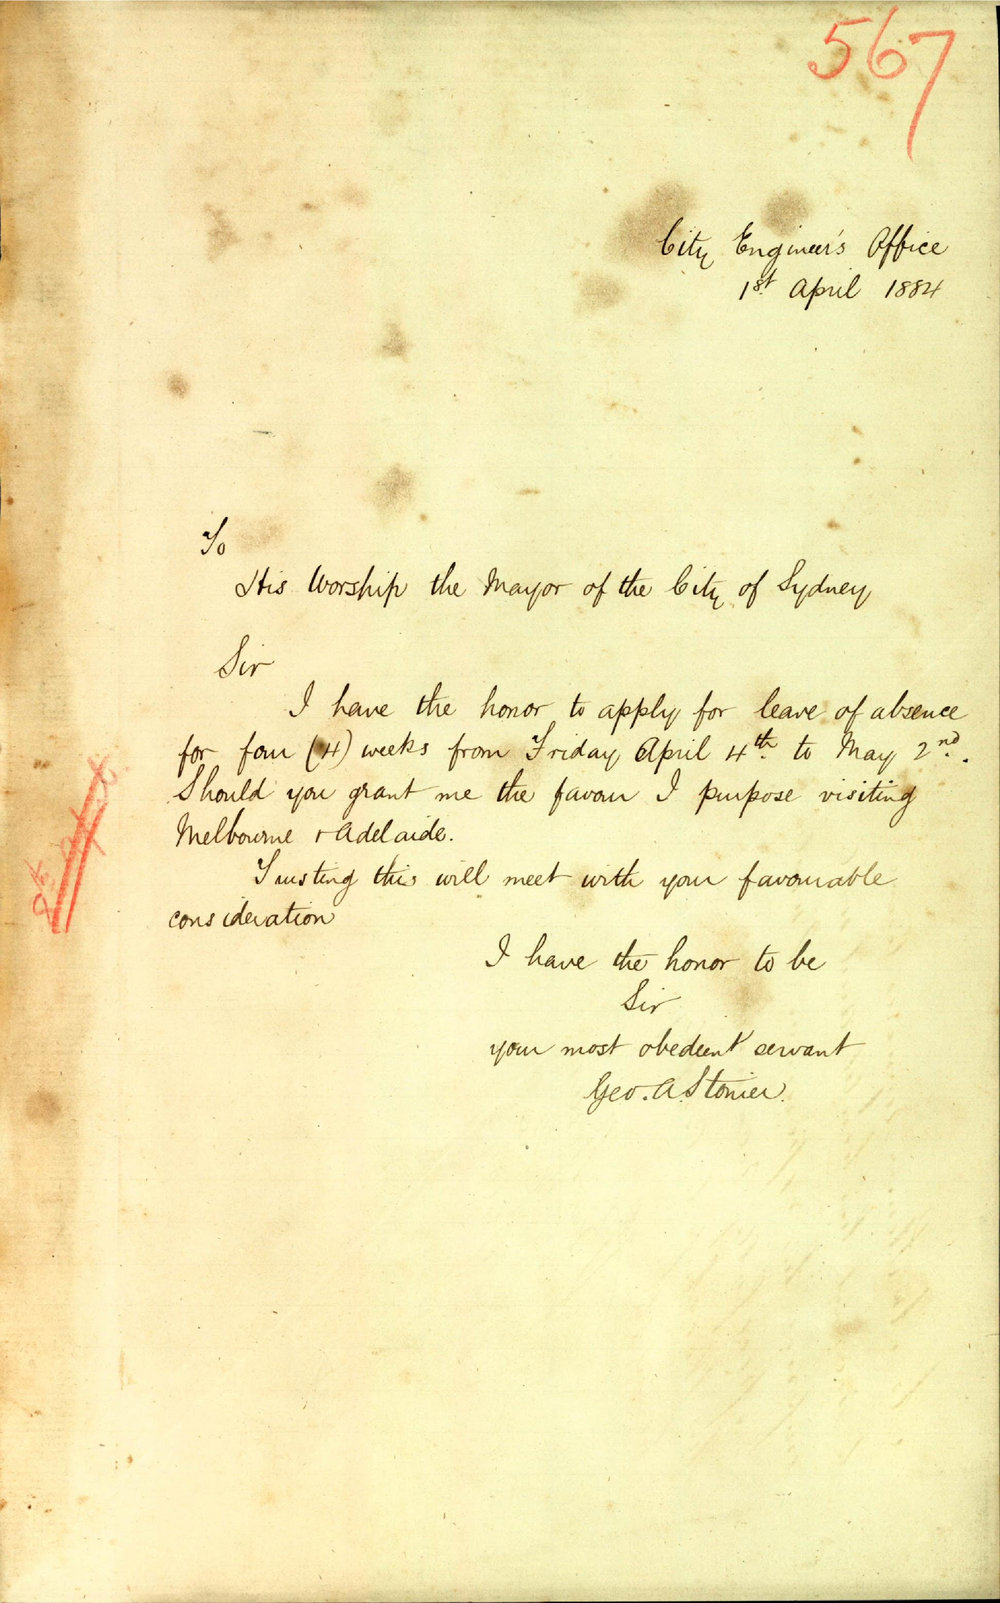 567
City Engineer's Office
1st April 1884
To
His Worship the Mayor of the City of Sydney
Sir
I have the honor to apply for leave of absence
for four (4) weeks from Friday April 4th to May 2nd.
Should you grant me the favour I purpose visiting
Melbourne & Adelaide.
Trusting this will meet with your favourable
consideration
I have the honor to be
Sir
your most obedient servant
Geo. A. Stonier.